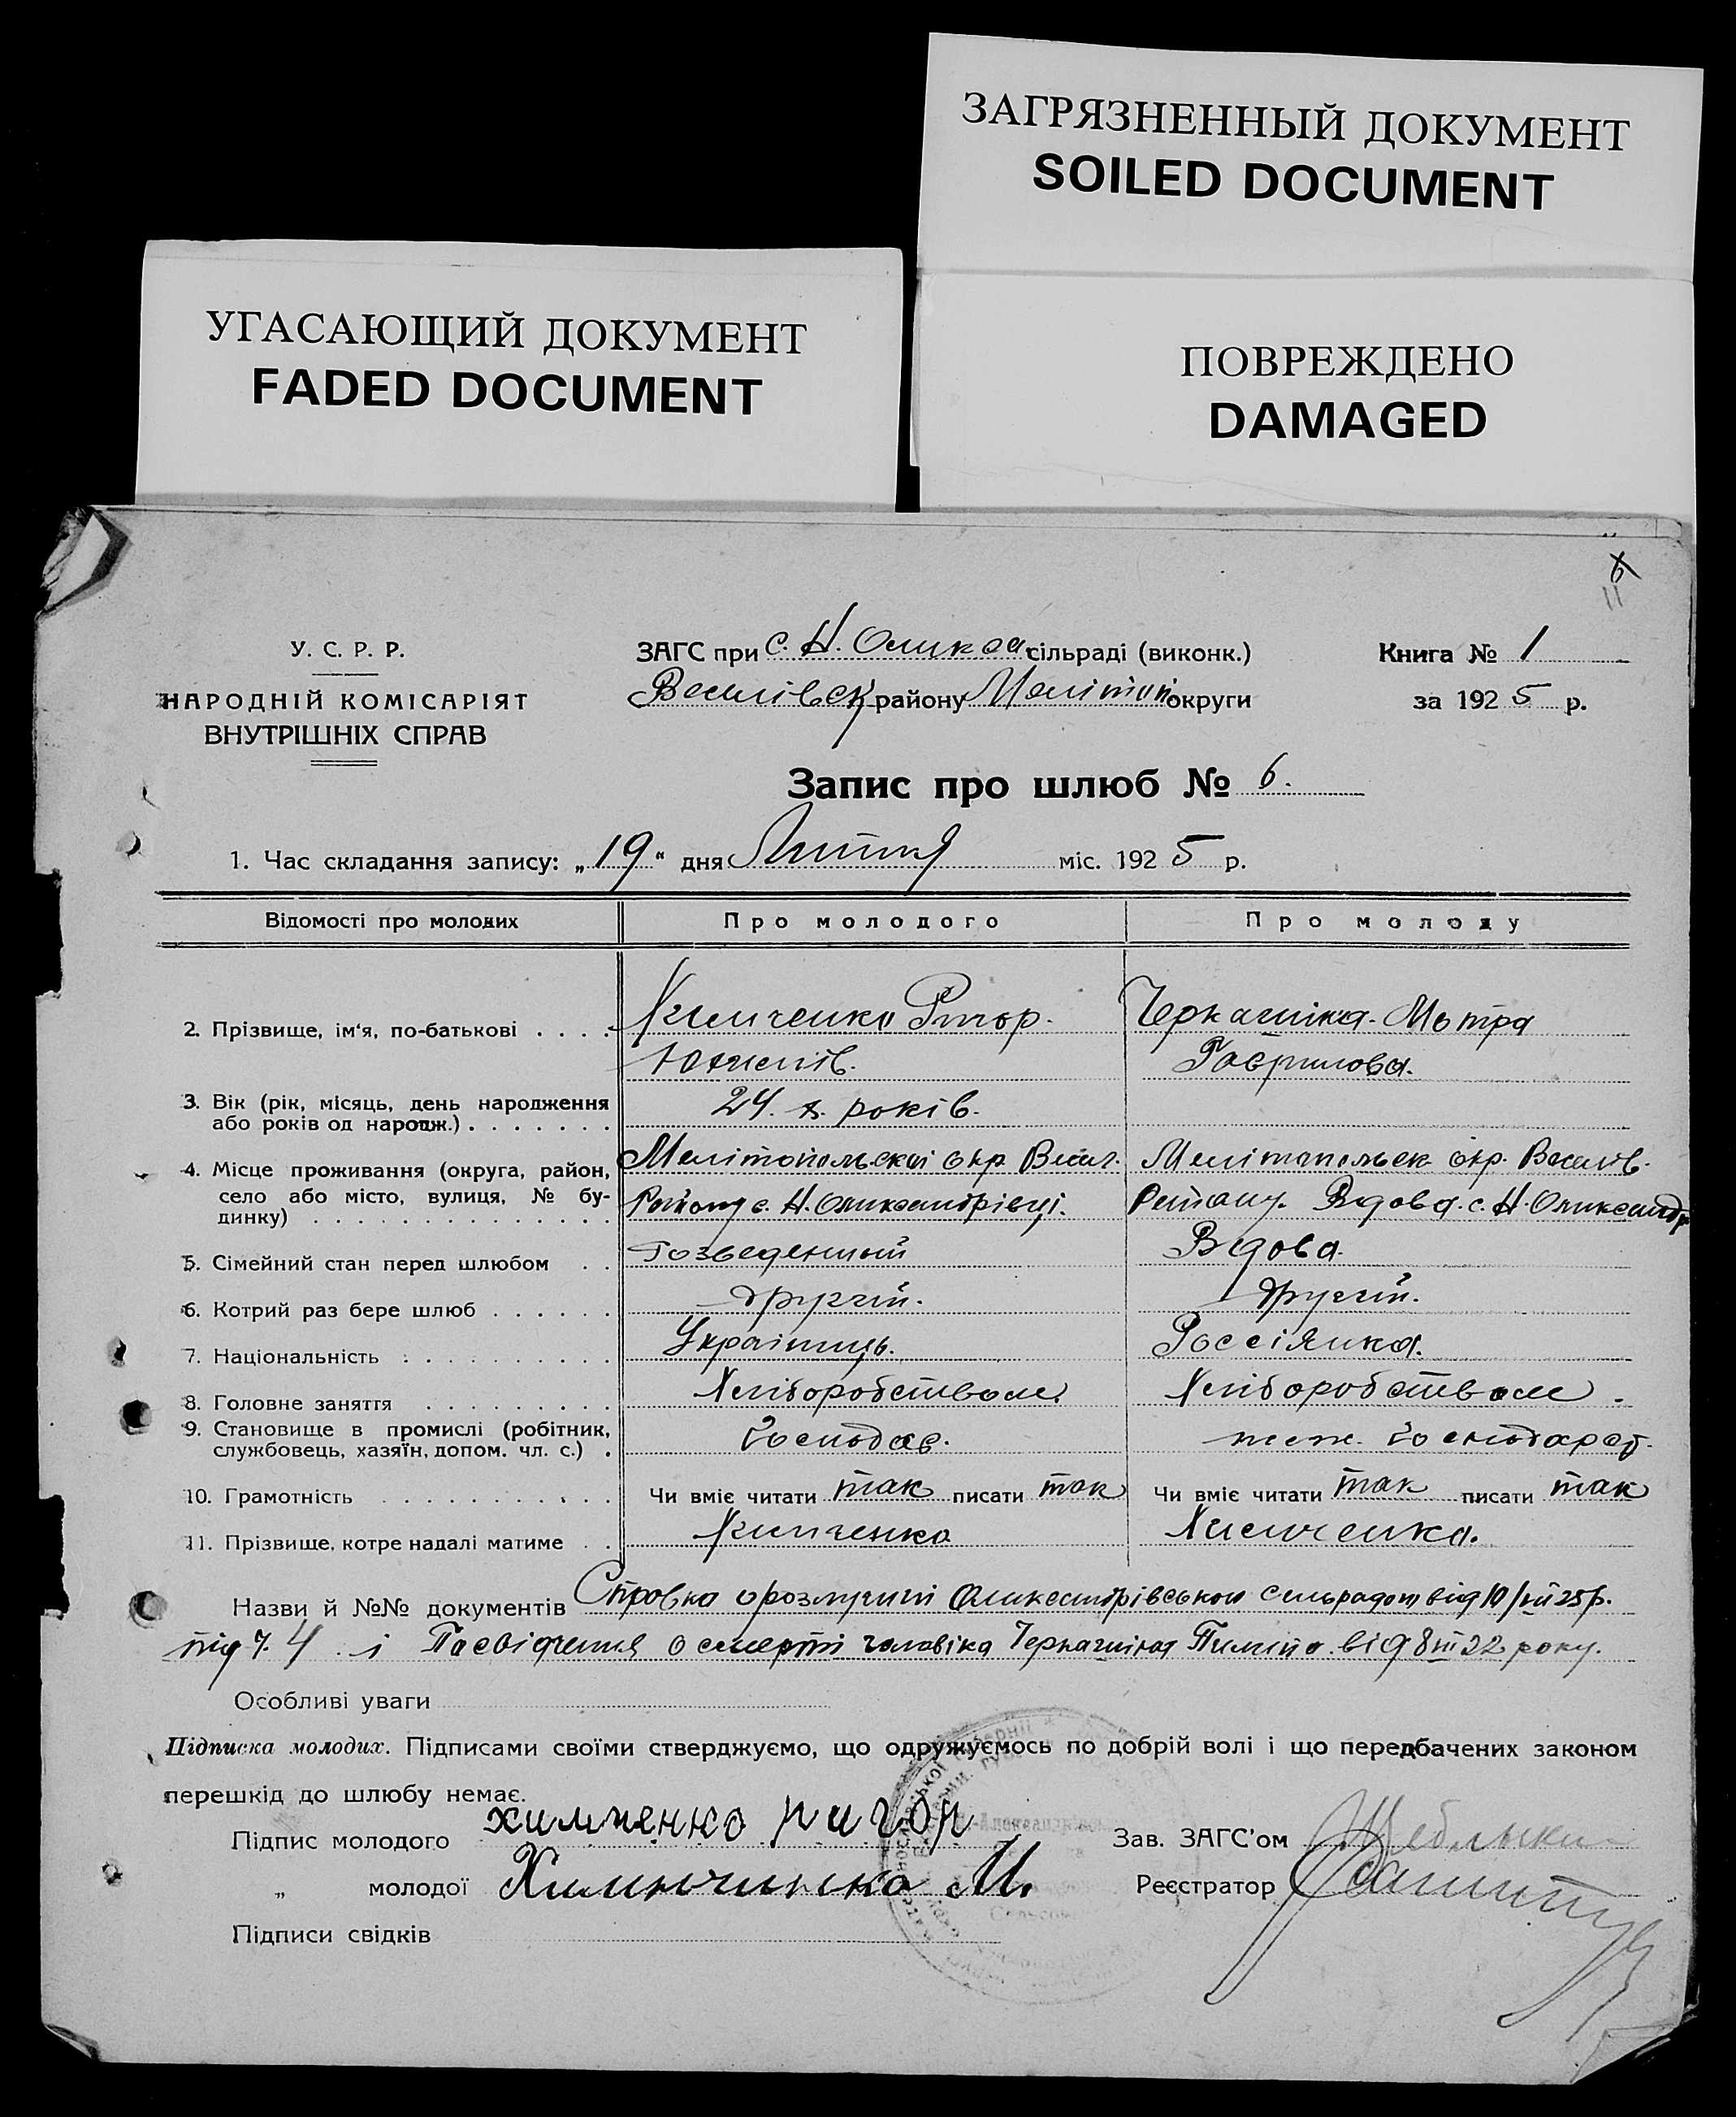 ЗАГРЯЗНЕННЫЙ ДОКУМЕНТ
SOILED DOCUMENT
УГАСАЮЩИЙ ДОКУМЕНТ
FADED DOCUMENT
ПОВРЕЖДЕНО
DAMAGED
6
11
У. С. Р. Р.
НАРОДНІЙ КОМІСАРІЯТ
ВНУТРІШНІХ СПРАВ
ЗАГС при с. Н. Оликса сільраді (виконк.)
Василівськ району Меліточ округи
Книга № 1
за 1925 р.
Запис про шлюб № 6.
1. Час складання запису: „19“ дня Липня міс. 1925 р.
Відомості про молодих Про молодого Про молоду
2. Прізвище, ім'я, по-батькові . . . . Химченко Ригор. Черкашіна Мотра
Юхимів. Гаврилова.
3. Вік (рік, місяць, день народження 24. років.
або років од народж.) . . . . . . .
4. Місце проживання (округа, район, Мелітопольскої окр Васил. Мелітопольск окр. Василів.
село або місто, вулиця, № бу- Району с. Н. Олександрівці. Району. Вдова. с. Н. Олександр
динку) . . . . . . . . . . . . . .
5. Сімейний стан перед шлюбом . . Розведенный Вдова.
6. Котрий раз бере шлюб . . . . . . другий. другий.
7. Національність . . . . . . . . . . Українець. Россіянка.
8. Головне заняття . . . . . . . . . Хліборобством. Хліборобством.
9. Становище в промислі (робітник, Господар. член. господарст.
службовець, хазяїн, допом. чл. с.) .
10. Грамотність . . . . . . . . . . . Чи вміє читати так писати так Чи вміє читати так писати так
11. Прізвище, котре надалі матиме . . Химченко Химченка.
Назви й №№ документів Справка о розлученні Олександрівською сельрадою від 10/VII 25 р.
під Ч. 4 і Посвідчення о смерті чоловіка Черкашіна Пилипа від 8 III 22 року.
Особливі уваги
Підписка молодих. Підписами своїми стверджуємо, що одружуємось по добрій волі і що передбачених законом
перешкід до шлюбу немає.
Підпис молодого химченко ригор Зав. ЗАГС'ом
„ молодої Химченко М. Реєстратор
Підписи свідків